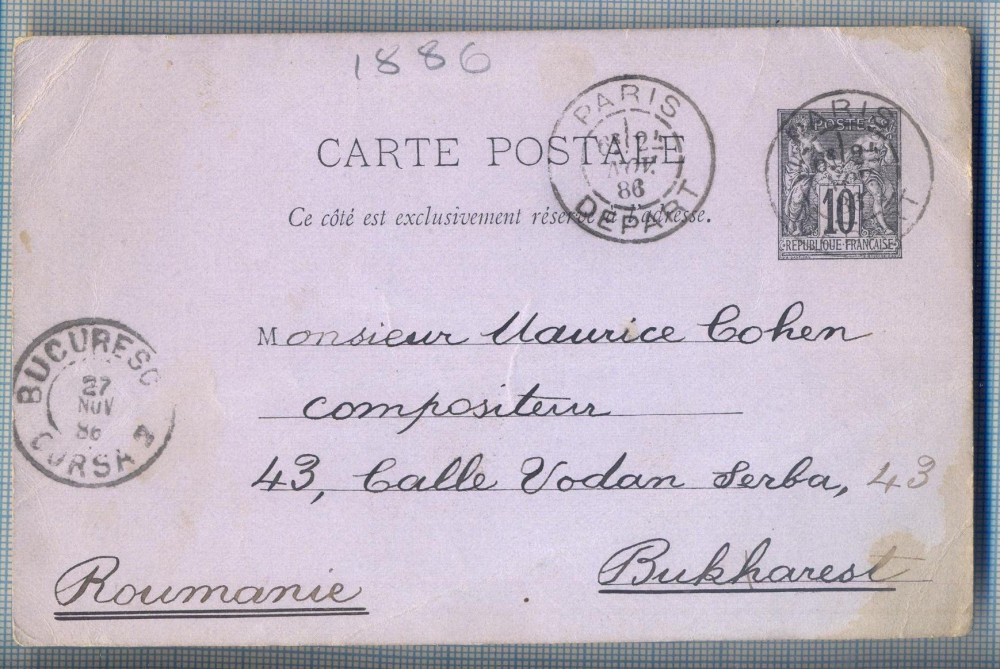 1886
CARTE POSTALE
Ce côté est exclusivement réservé à l'adresse.
PARIS
NOV.
86
DEPART
PARIS
POSTES
10
REPUBLIQUE FRANÇAISE
Monsieur Maurice Cohen
compositeur
43, Calle Vodan Serba, 43
Bukharest
Roumanie
BUCURESC
27
NOV
86
CURSA 3